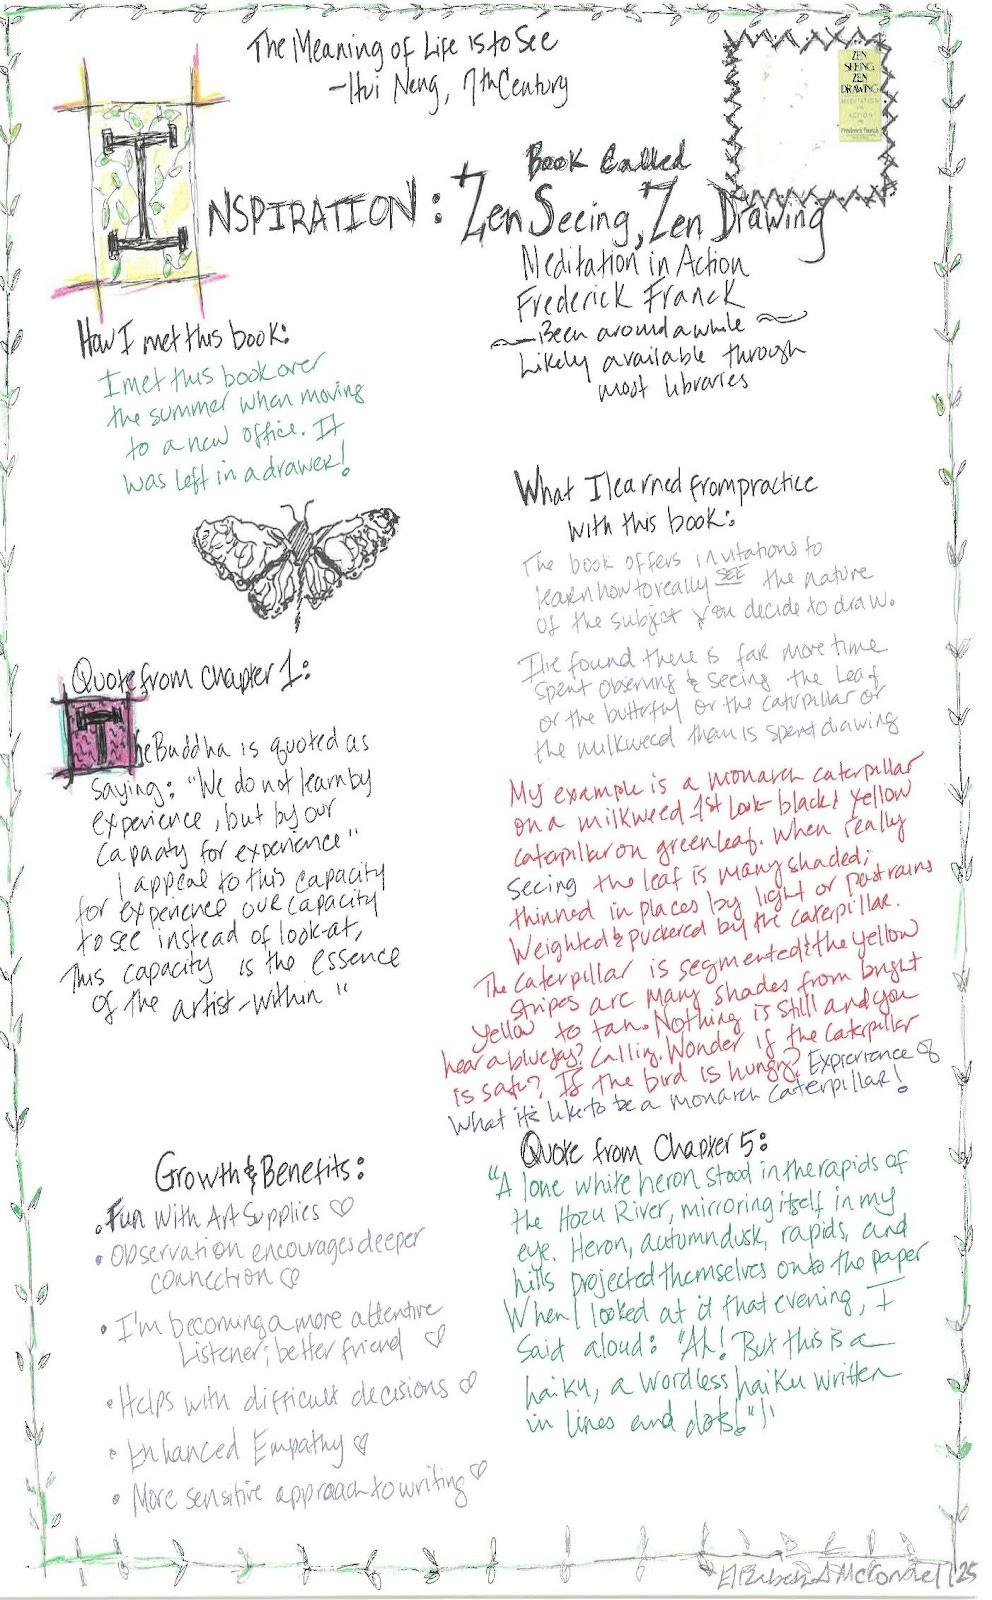 The Meaning of Life is to See
-Hui Neng, 7th Century
ZEN
SEEING,
ZEN
DRAWING
MEDITATION
IN
ACTION
Frederick Franck
INSPIRATION:
Book Called
Zen Seeing, Zen Drawing
Meditation in Action
Frederick Franck
Been around awhile
Likely available through
most libraries
How I met this book:
I met this book over
the summer when moving
to a new office. It
was left in a drawer!
Quote from Chapter 1:
The Buddha is quoted as
saying: "We do not learn by
experience, but by our
capacity for experience"
I appeal to this capacity
for experience our capacity
to see instead of look-at,
This capacity is the essence
of the artist-within"
Growth & Benefits:
• Fun with Art Supplies ♡
• Observation encourages deeper
connection ♡
• I'm becoming a more attentive
Listener; better friend ♡
• Helps with difficult decisions ♡
• Enhanced Empathy ♡
• More sensitive approach to writing ♡
What I learned from practice
with this book:
The book offers invitations to
learn how to really SEE the nature
of the subject you decide to draw.
I've found there is far more time
spent observing & seeing the leaf
or the butterfly or the caterpillar or
the milkweed than is spent drawing
My example is a monarch caterpillar
on a milkweed 1st look- black & yellow
caterpillar on green leaf. When really
Seeing the leaf is many shaded;
thinned in places by light or
Weighted & puckered by the caterpillar.
The caterpillar is segmented & the yellow
stripes are many shades from bright
yellow to tan. Nothing is still and you
hear a bluejay? Calling. Wonder if the caterpillar
is safe? If the bird is hungry? Exprerience of
What it's like to be a monarch caterpillar!
Quote from Chapter 5:
"A lone white heron stood in the rapids of
the Hozu River, mirroring itself in my
eye. Heron, autumn dusk, rapids, and
hills projected themselves onto the paper
When I looked at it that evening, I
said aloud: "Ah! But this is a
haiku, a wordless haiku written
in lines and dots!"))